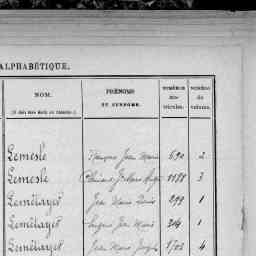 ALPHABÉTIQUE.
NOM. PRÉNOMS ET SURNOMS. NUMÉROS matricules. NUMÉRO du volume.
Lemesle François Jean Marie 690 2
Lemesle 1188 3
Lemétayer Jean Marie Denis 299 1
Lemétayer Eugène Jean Marie 314 1
Lemétayer Jean Marie Joseph 1702 4